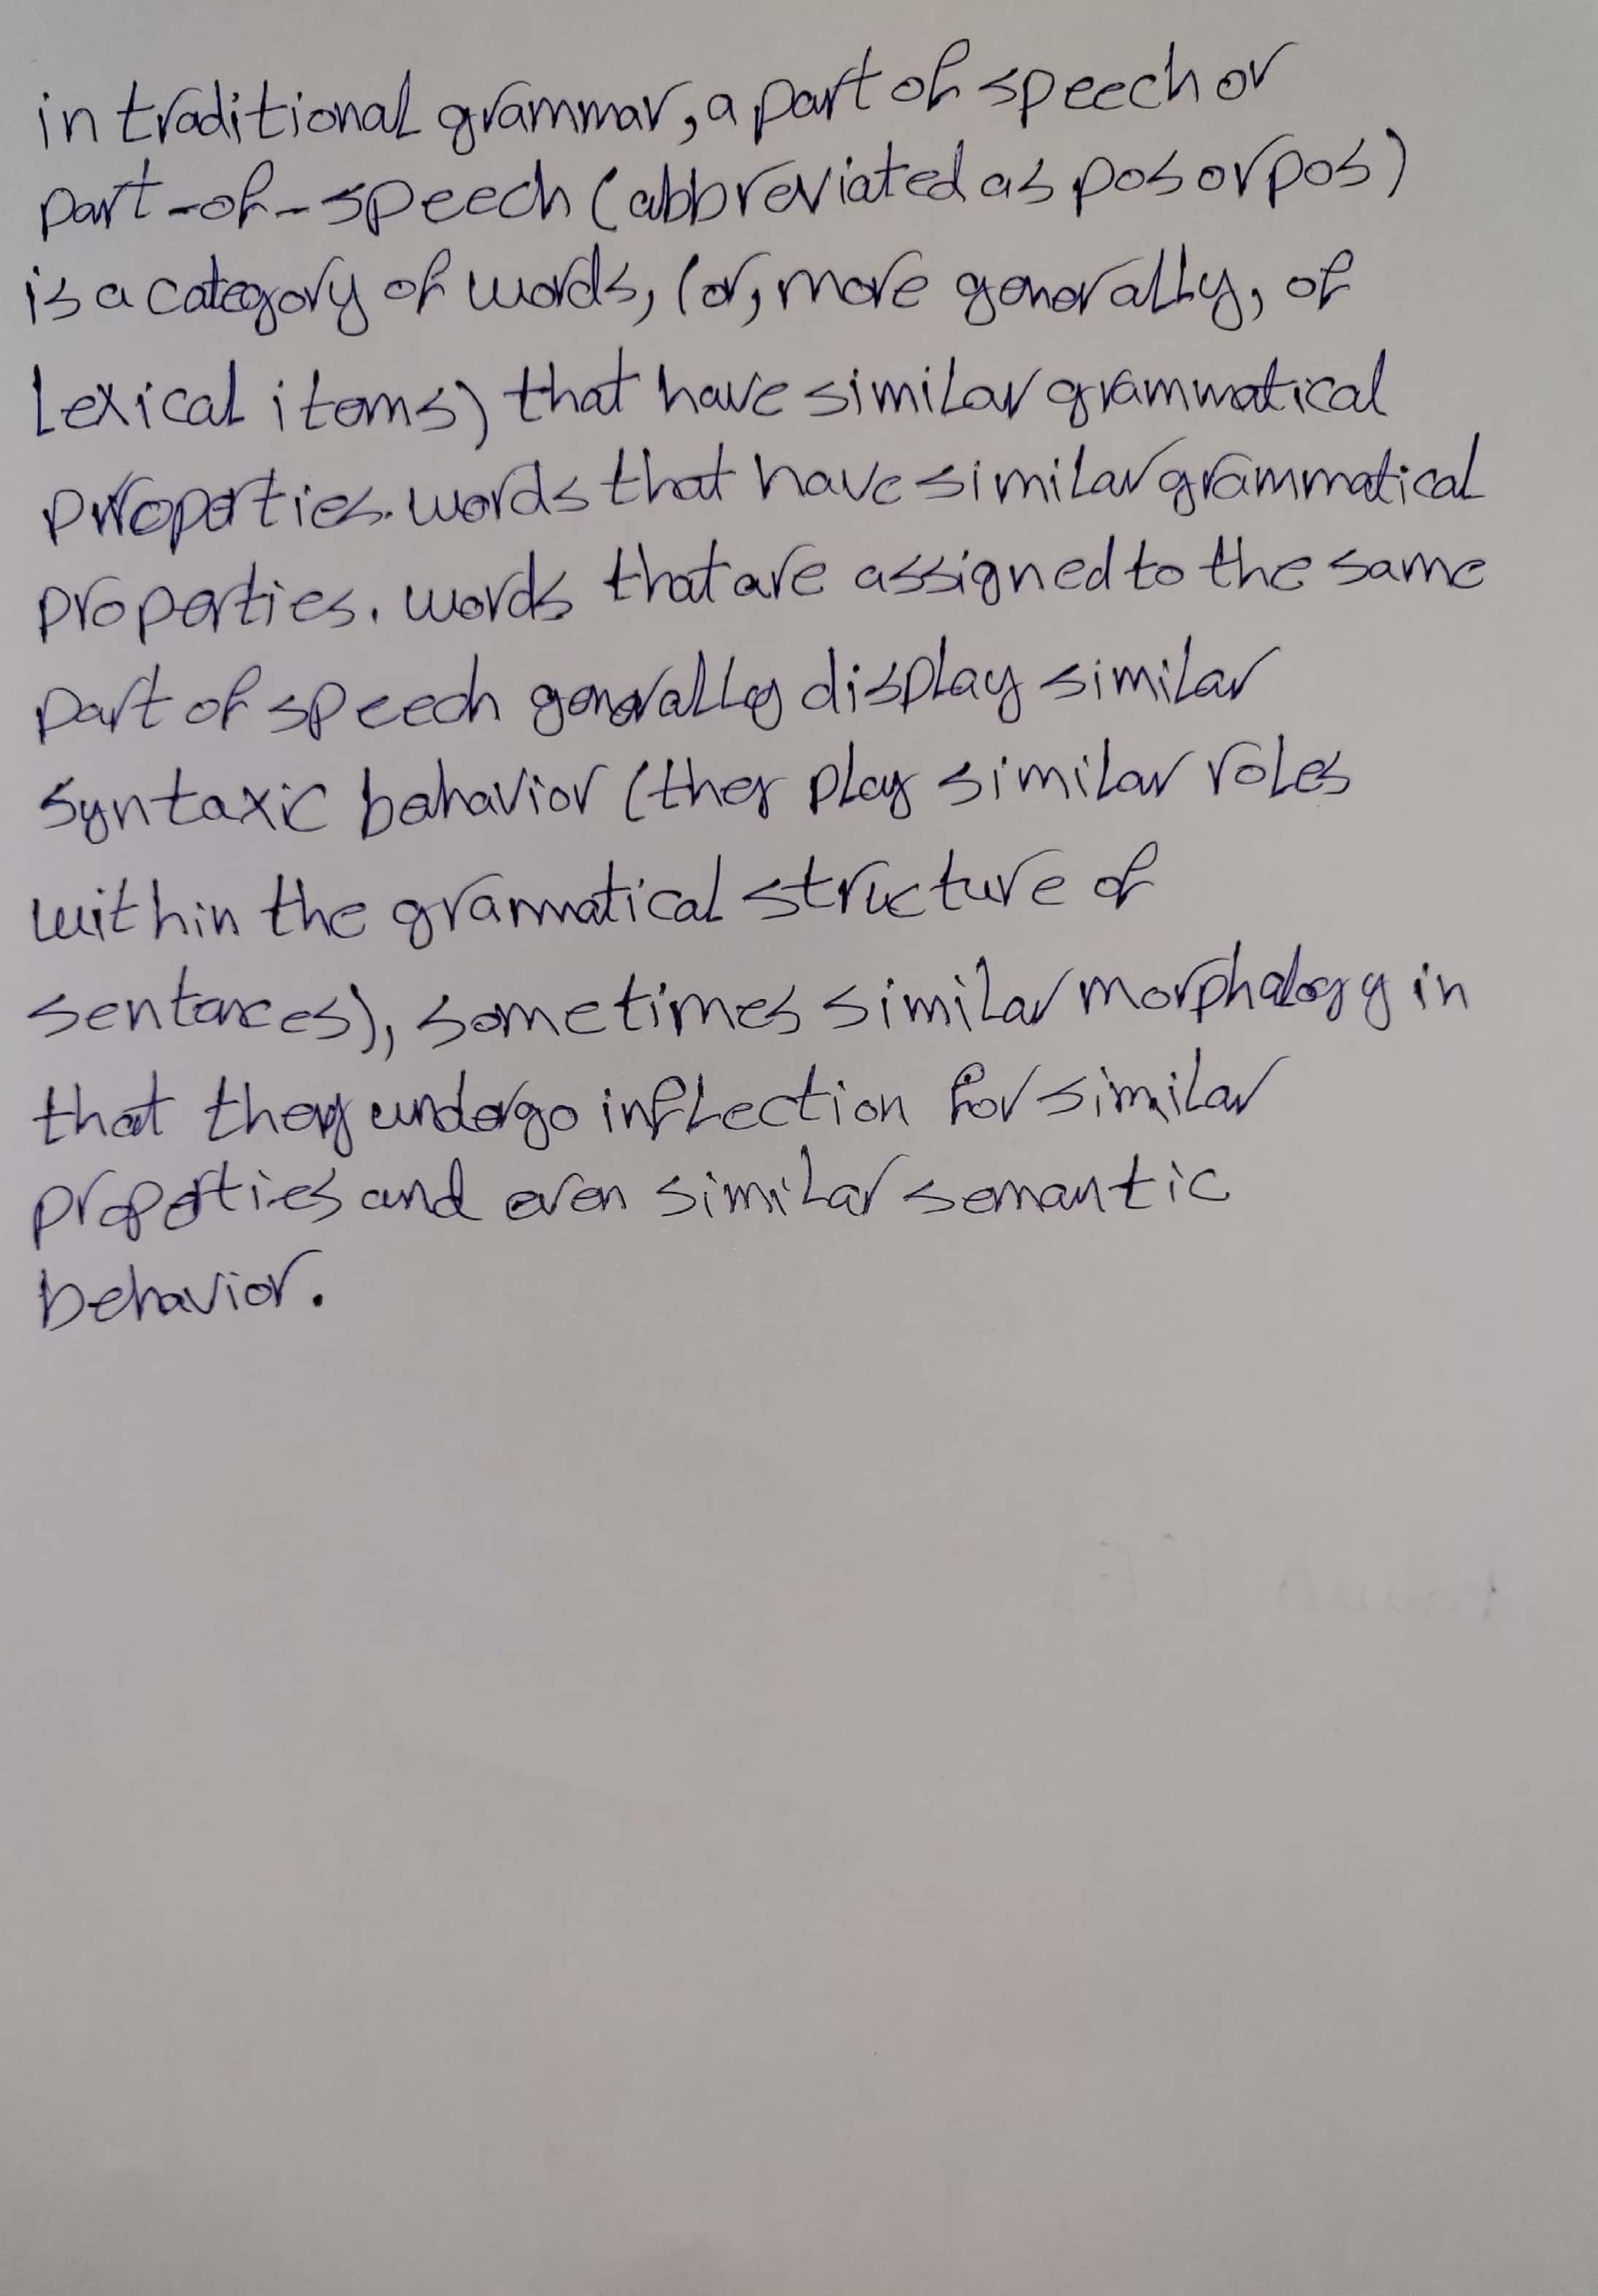 in traditional grammar, a part of speech or
part-of-speech (abbreviated as pos or pos)
is a category of words, (or, more generally, of
Lexical items) that have similar grammatical
properties. words that have similar grammatical
properties. words that are assigned to the same
part of speech generally display similar
syntaxic behavior (they play similar roles
within the grammatical structure of
sentences), sometimes similar morphology in
that they undergo inflection for similar
properties and even similar semantic
behavior.